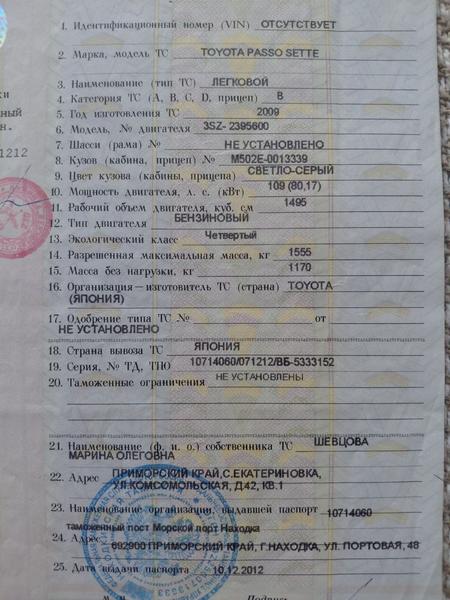 1. Идентификационный номер (VIN) ОТСУТСТВУЕТ
2. Марка, модель ТС TOYOTA PASSO SETTE
3. Наименование (тип ТС) ЛЕГКОВОЙ
4. Категория ТС (А, В, С, D, прицеп) В
5. Год изготовления ТС 2009
6. Модель, № двигателя 3SZ- 2395600
7. Шасси (рама) № НЕ УСТАНОВЛЕНО
8. Кузов (кабина, прицеп) № M502E-0013339
9. Цвет кузова (кабины, прицепа) СВЕТЛО-СЕРЫЙ
10. Мощность двигателя, л. с. (кВт) 109 (80,17)
11. Рабочий объем двигателя, куб. см 1495
12. Тип двигателя БЕНЗИНОВЫЙ
13. Экологический класс Четвертый
14. Разрешенная максимальная масса, кг 1555
15. Масса без нагрузки, кг 1170
16. Организация—изготовитель ТС (страна) TOYOTA
(ЯПОНИЯ)
17. Одобрение типа ТС № от
НЕ УСТАНОВЛЕНО
18. Страна вывоза ТС ЯПОНИЯ
19. Серия, № ТД, ТПО 10714060/071212/ВБ-5333152
20. Таможенные ограничения НЕ УСТАНОВЛЕНЫ
21. Наименование (ф. и. о.) собственника ТС ШЕВЦОВА
МАРИНА ОЛЕГОВНА
22. Адрес ПРИМОРСКИЙ КРАЙ,С.ЕКАТЕРИНОВКА,
УЛ.КОМСОМОЛЬСКАЯ, Д.42, КВ.1
23. Наименование организации, выдавшей паспорт 10714060
таможенный пост Морской порт Находка
24. Адрес 692900 ПРИМОРСКИЙ КРАЙ, Г.НАХОДКА, УЛ. ПОРТОВАЯ, 48
25. Дата выдачи паспорта 10.12.2012
1212